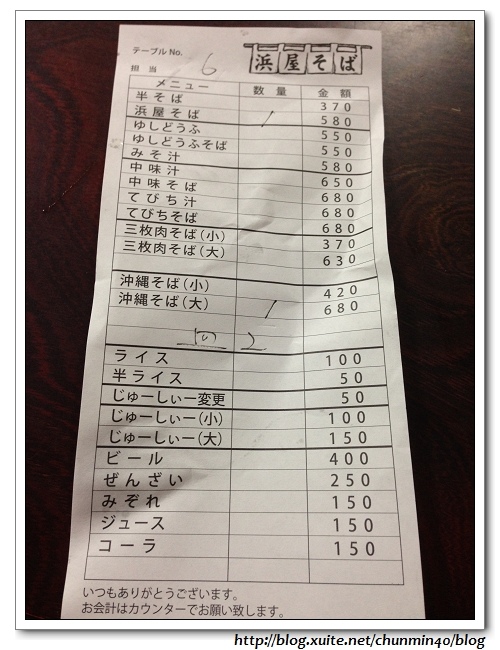 テーブル No.
担当 6
浜屋そば
メニュー 数量 金額
半そば 370
浜屋そば / 580
ゆしどうふ 550
ゆしどうふそば 550
みそ汁 580
中味汁 650
中味そば 680
てびち汁 680
てびちそば 680
三枚肉そば(小) 370
三枚肉そば(大) 630
沖縄そば(小) 420
沖縄そば(大) / 680
2
ライス 100
半ライス 50
じゅーしぃー変更 50
じゅーしぃー(小) 100
じゅーしぃー(大) 150
ビール 400
ぜんざい 250
みぞれ 150
ジュース 150
コーラ 150
いつもありがとうございます。
お会計はカウンターでお願い致します。
http://blog.xuite.net/chunmin40/blog